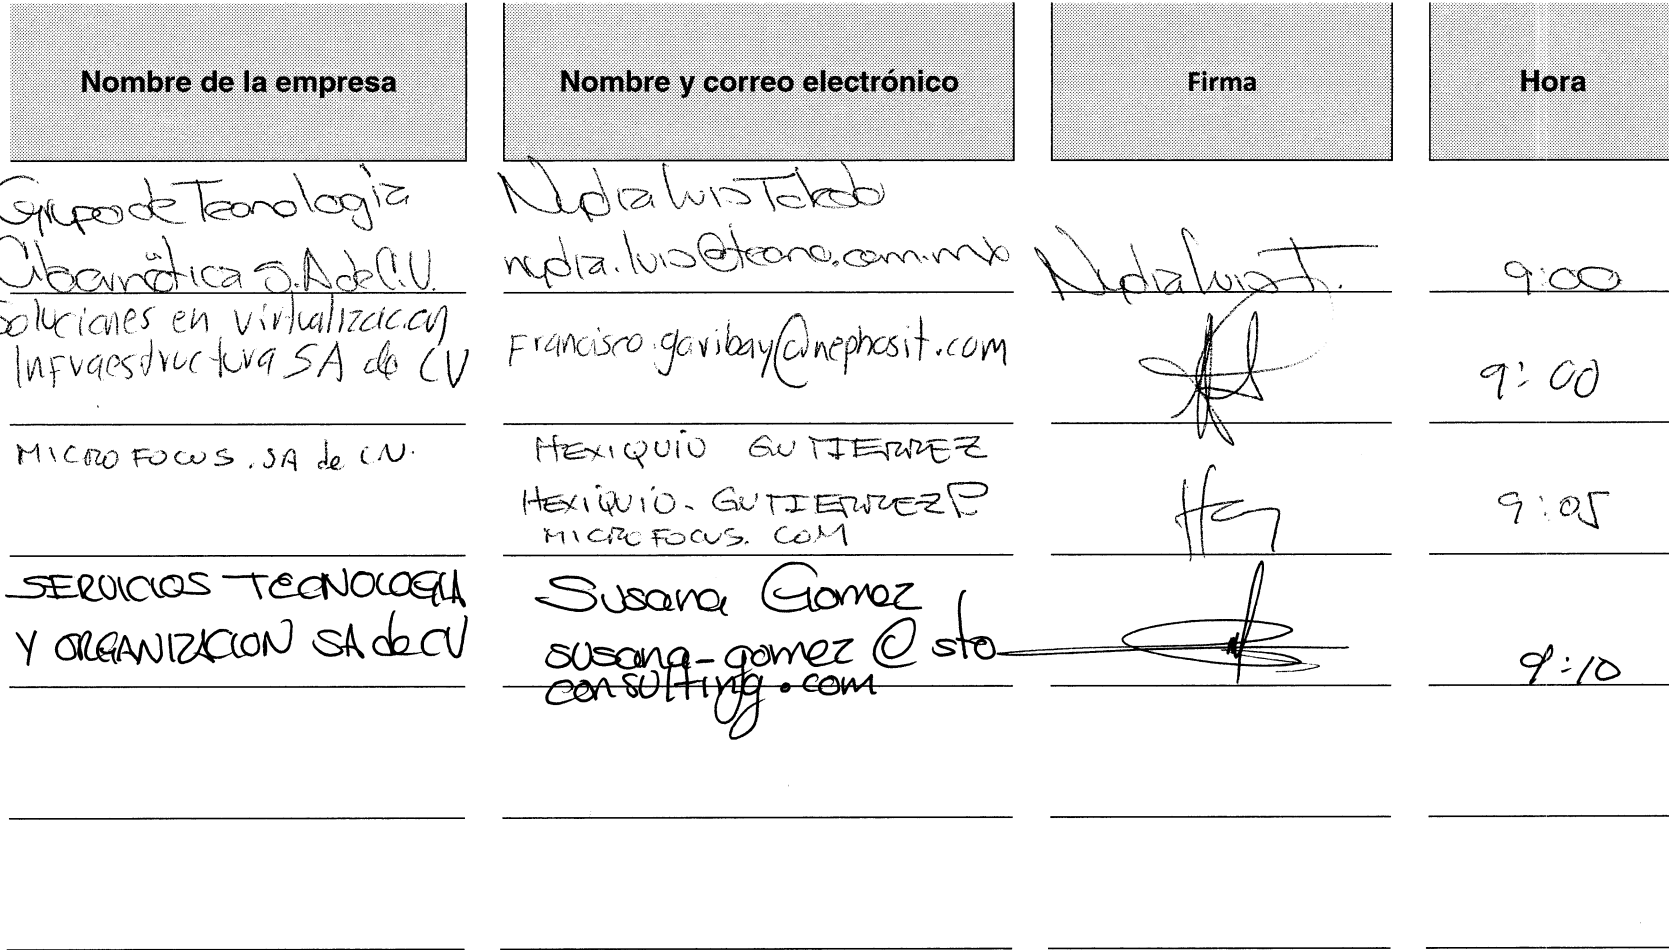 Nombre de la empresa Nombre y correo electrónico Firma Hora
Grupo de Tecnología Nydia Luis Toledo
Cibernética S.A de C.V. nydia.luis@tecno.com.mx Nydia Luis T. 9:00
Soluciones en virtualización
Infraestructura SA de CV Francisco.garibay@nephosit.com 9:00
MICRO FOCUS. SA de CV. HEXIQUIO GUTIERREZ
HEXIQUIO.GUTIERREZ@ 9:05
MICROFOCUS.COM
SERVICIOS TECNOLOGIA Susana Gomez
Y ORGANIZACION SA de CV susana-gomez@sto 9:10
consulting.com